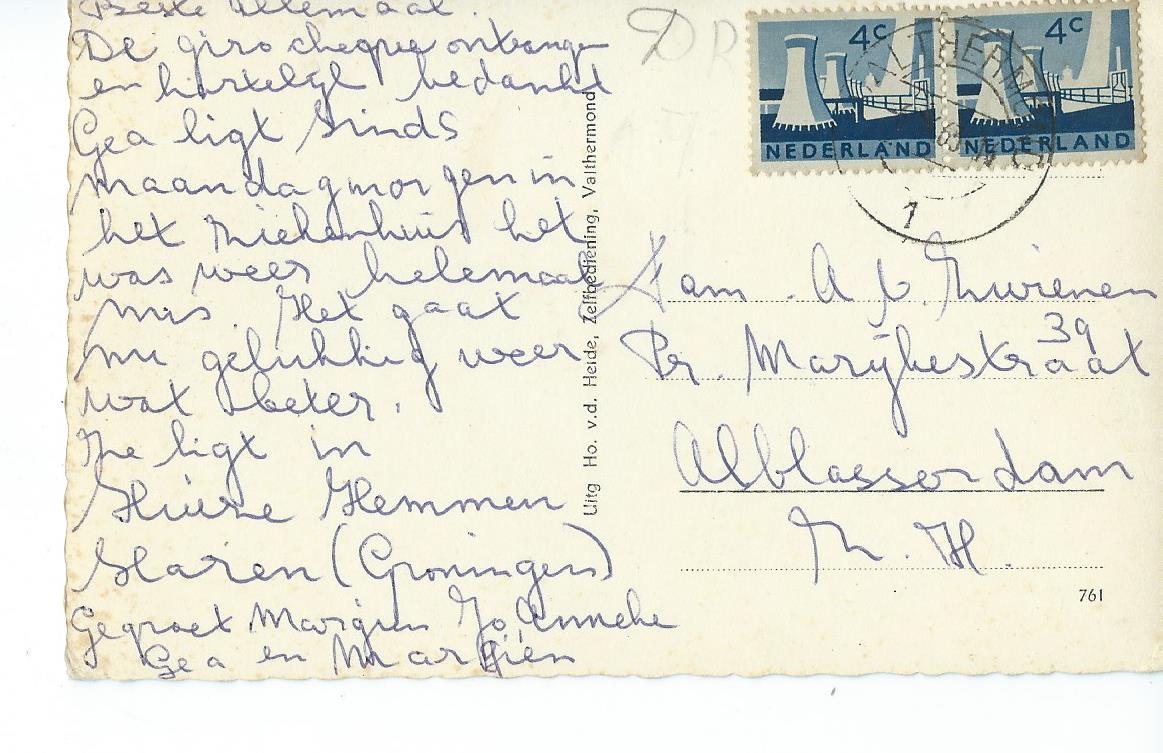 Beste Allemaal.
De giro cheque ontvangen
en hartelijk bedankt
Gea ligt sinds
maandagmorgen in
het Ziekenhuis het
was weer helemaal
mis. Het gaat
nu gelukkig weer
wat beter.
Ze ligt in
Huize Hemmen
Haren (Groningen)
Gegroet Margien Jo Anneke
Gea en Margien
Uitg Ho. v.d. Heide, Zelfbediening, Valthermond
DR
4c
NEDERLAND
4c
NEDERLAND
VALTHERMO
1
Fam. A. v.
39
Pr. Marijkestraat
Alblasserdam
Z. H.
761